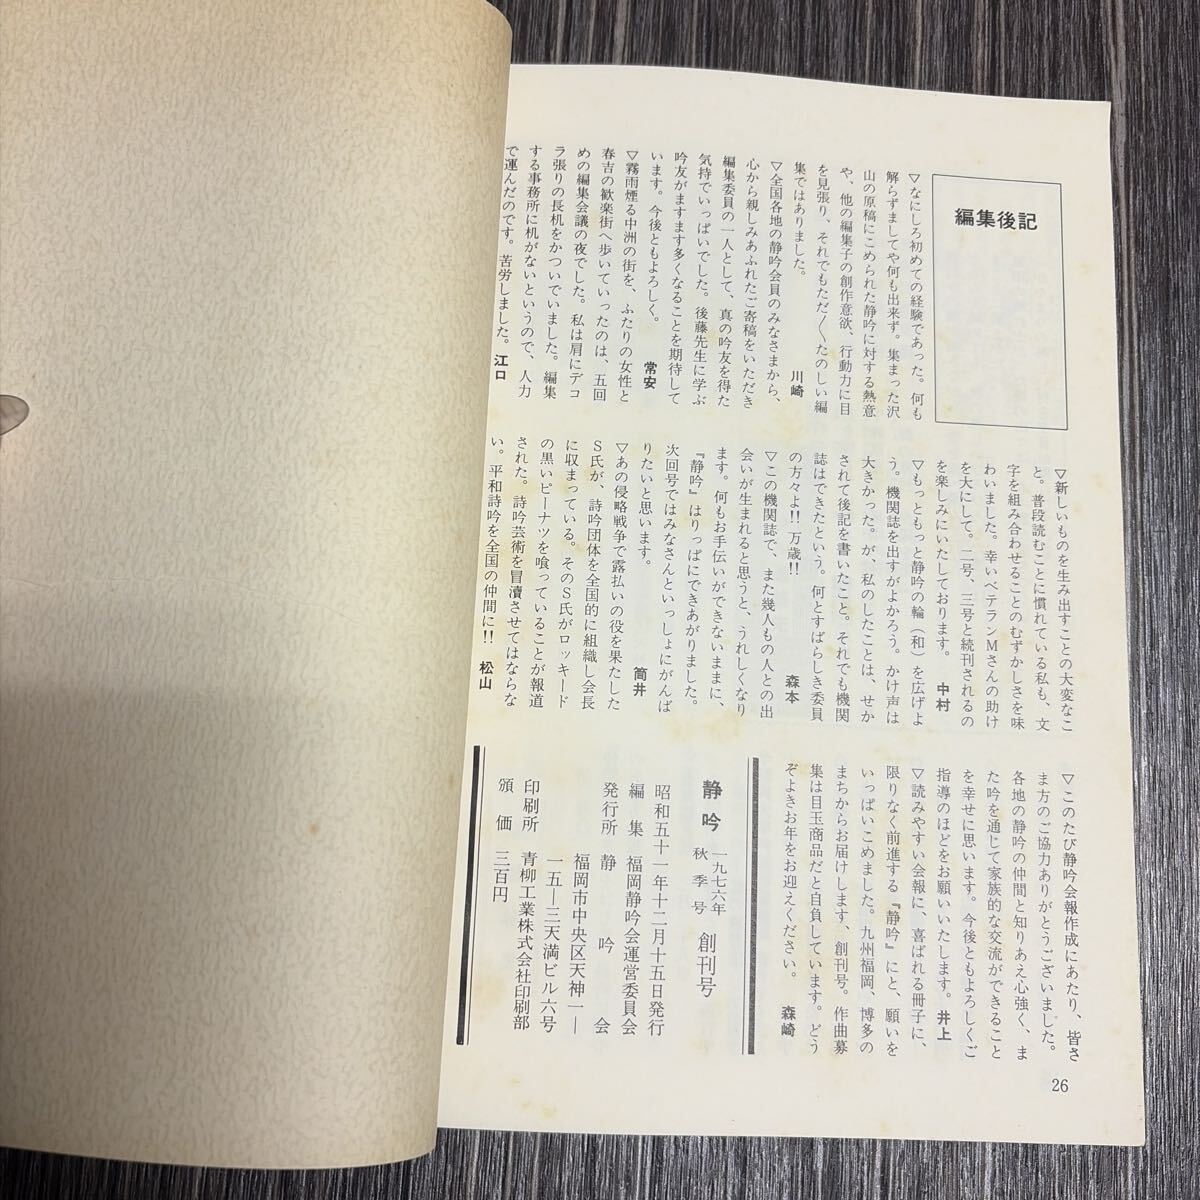 編集後記
▽なにしろ初めての経験であった。何も
解らずましてや何も出来ず。集まった沢
山の原稿にこめられた静吟に対する熱意
や、他の編集子の創作意欲、行動力に目
を見張り、それでもただ〳〵たのしい編
集ではありました。 川崎
▽全国各地の静吟会員のみなさまから、
心から親しみあふれたご寄稿をいただき
編集委員の一人として、真の吟友を得た
気持でいっぱいでした。後藤先生に学ぶ
吟友がますます多くなることを期待して
います。今後ともよろしく。 常安
▽霧雨煙る中洲の街を、ふたりの女性と
春吉の歓楽街へ歩いていったのは、五回
めの編集会議の夜でした。私は肩にデコ
ラ張りの長机をかついでいました。編集
する事務所に机がないというので、人力
で運んだのです。苦労しました。 江口
▽新しいものを生み出すことの大変なこ
と。普段読むことに慣れている私も、文
字を組み合わせることのむずかしさを味
わいました。幸いベテランMさんの助け
を大にして。二号、三号と続刊されるの
を楽しみにいたしております。 中村
▽もっともっと静吟の輪（和）を広げよ
う。機関誌を出すがよかろう。かけ声は
大きかった。が、私のしたことは、せか
されて後記を書いたこと。それでも機関
誌はできたという。何とすばらしき委員
の方々よ!!万歳!! 森本
▽この機関誌で、また幾人もの人との出
会いが生まれると思うと、うれしくなり
ます。何もお手伝いができないままに、
『静吟』はりっぱにできあがりました。
次回号ではみなさんといっしょにがんば
りたいと思います。 筒井
▽あの侵略戦争で露払いの役を果たした
S氏が、詩吟団体を全国的に組織し会長
に収まっている。そのS氏がロッキード
の黒いピーナツを喰っていることが報道
された。詩吟芸術を冒瀆させてはならな
い。平和詩吟を全国の仲間に!! 松山
▽このたび静吟会報作成にあたり、皆さ
ま方のご協力ありがとうございました。
各地の静吟の仲間と知りあえ心強く、ま
た吟を通じて家族的な交流ができること
を幸せに思います。今後ともよろしくご
指導のほどをお願いいたします。 井上
▽読みやすい会報に、喜ばれる冊子に、
限りなく前進する『静吟』にと、願いを
いっぱいこめました。九州福岡、博多の
まちからお届けします、創刊号。作曲募
集は目玉商品だと自負しています。どう
ぞよきお年をお迎えください。 森崎
静吟 一九七六年 秋季号 創刊号
昭和五十一年十二月十五日発行
編集 福岡静吟会運営委員会
発行所 静吟会
福岡市中央区天神一―
一五―三天満ビル六号
印刷所 青柳工業株式会社印刷部
頒価 三百円
26